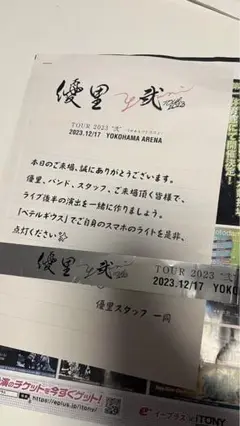 優里 弐
TOUR 2023 "弐"
2023.12/17 YOKOHAMA ARENA
本日のご来場、誠にありがとうございます。
優里、バンド、スタッフ、ご来場頂く皆様で、
ライブ後半の演出を一緒に作りましょう。
「ベテルギウス」でご自身のスマホのライトを是非、
点灯ください
優里 弐
TOUR 2023 "弐"
2023.12/17 YOKO
優里スタッフ 一同
演のチケットを今すぐゲット!
https://eplus.jp/itony/
e+ イープラス×iTONY